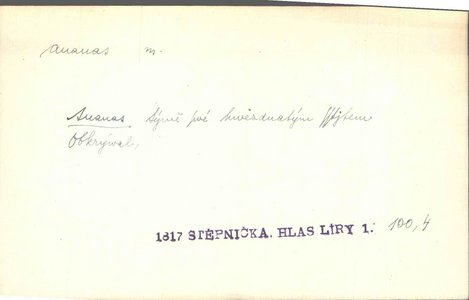 ananas m.
Ananas týmě své hwězdnatým
Obkrýwal,
1817 ŠTĚPNIČKA. HLAS LÍRY 1. 100,4